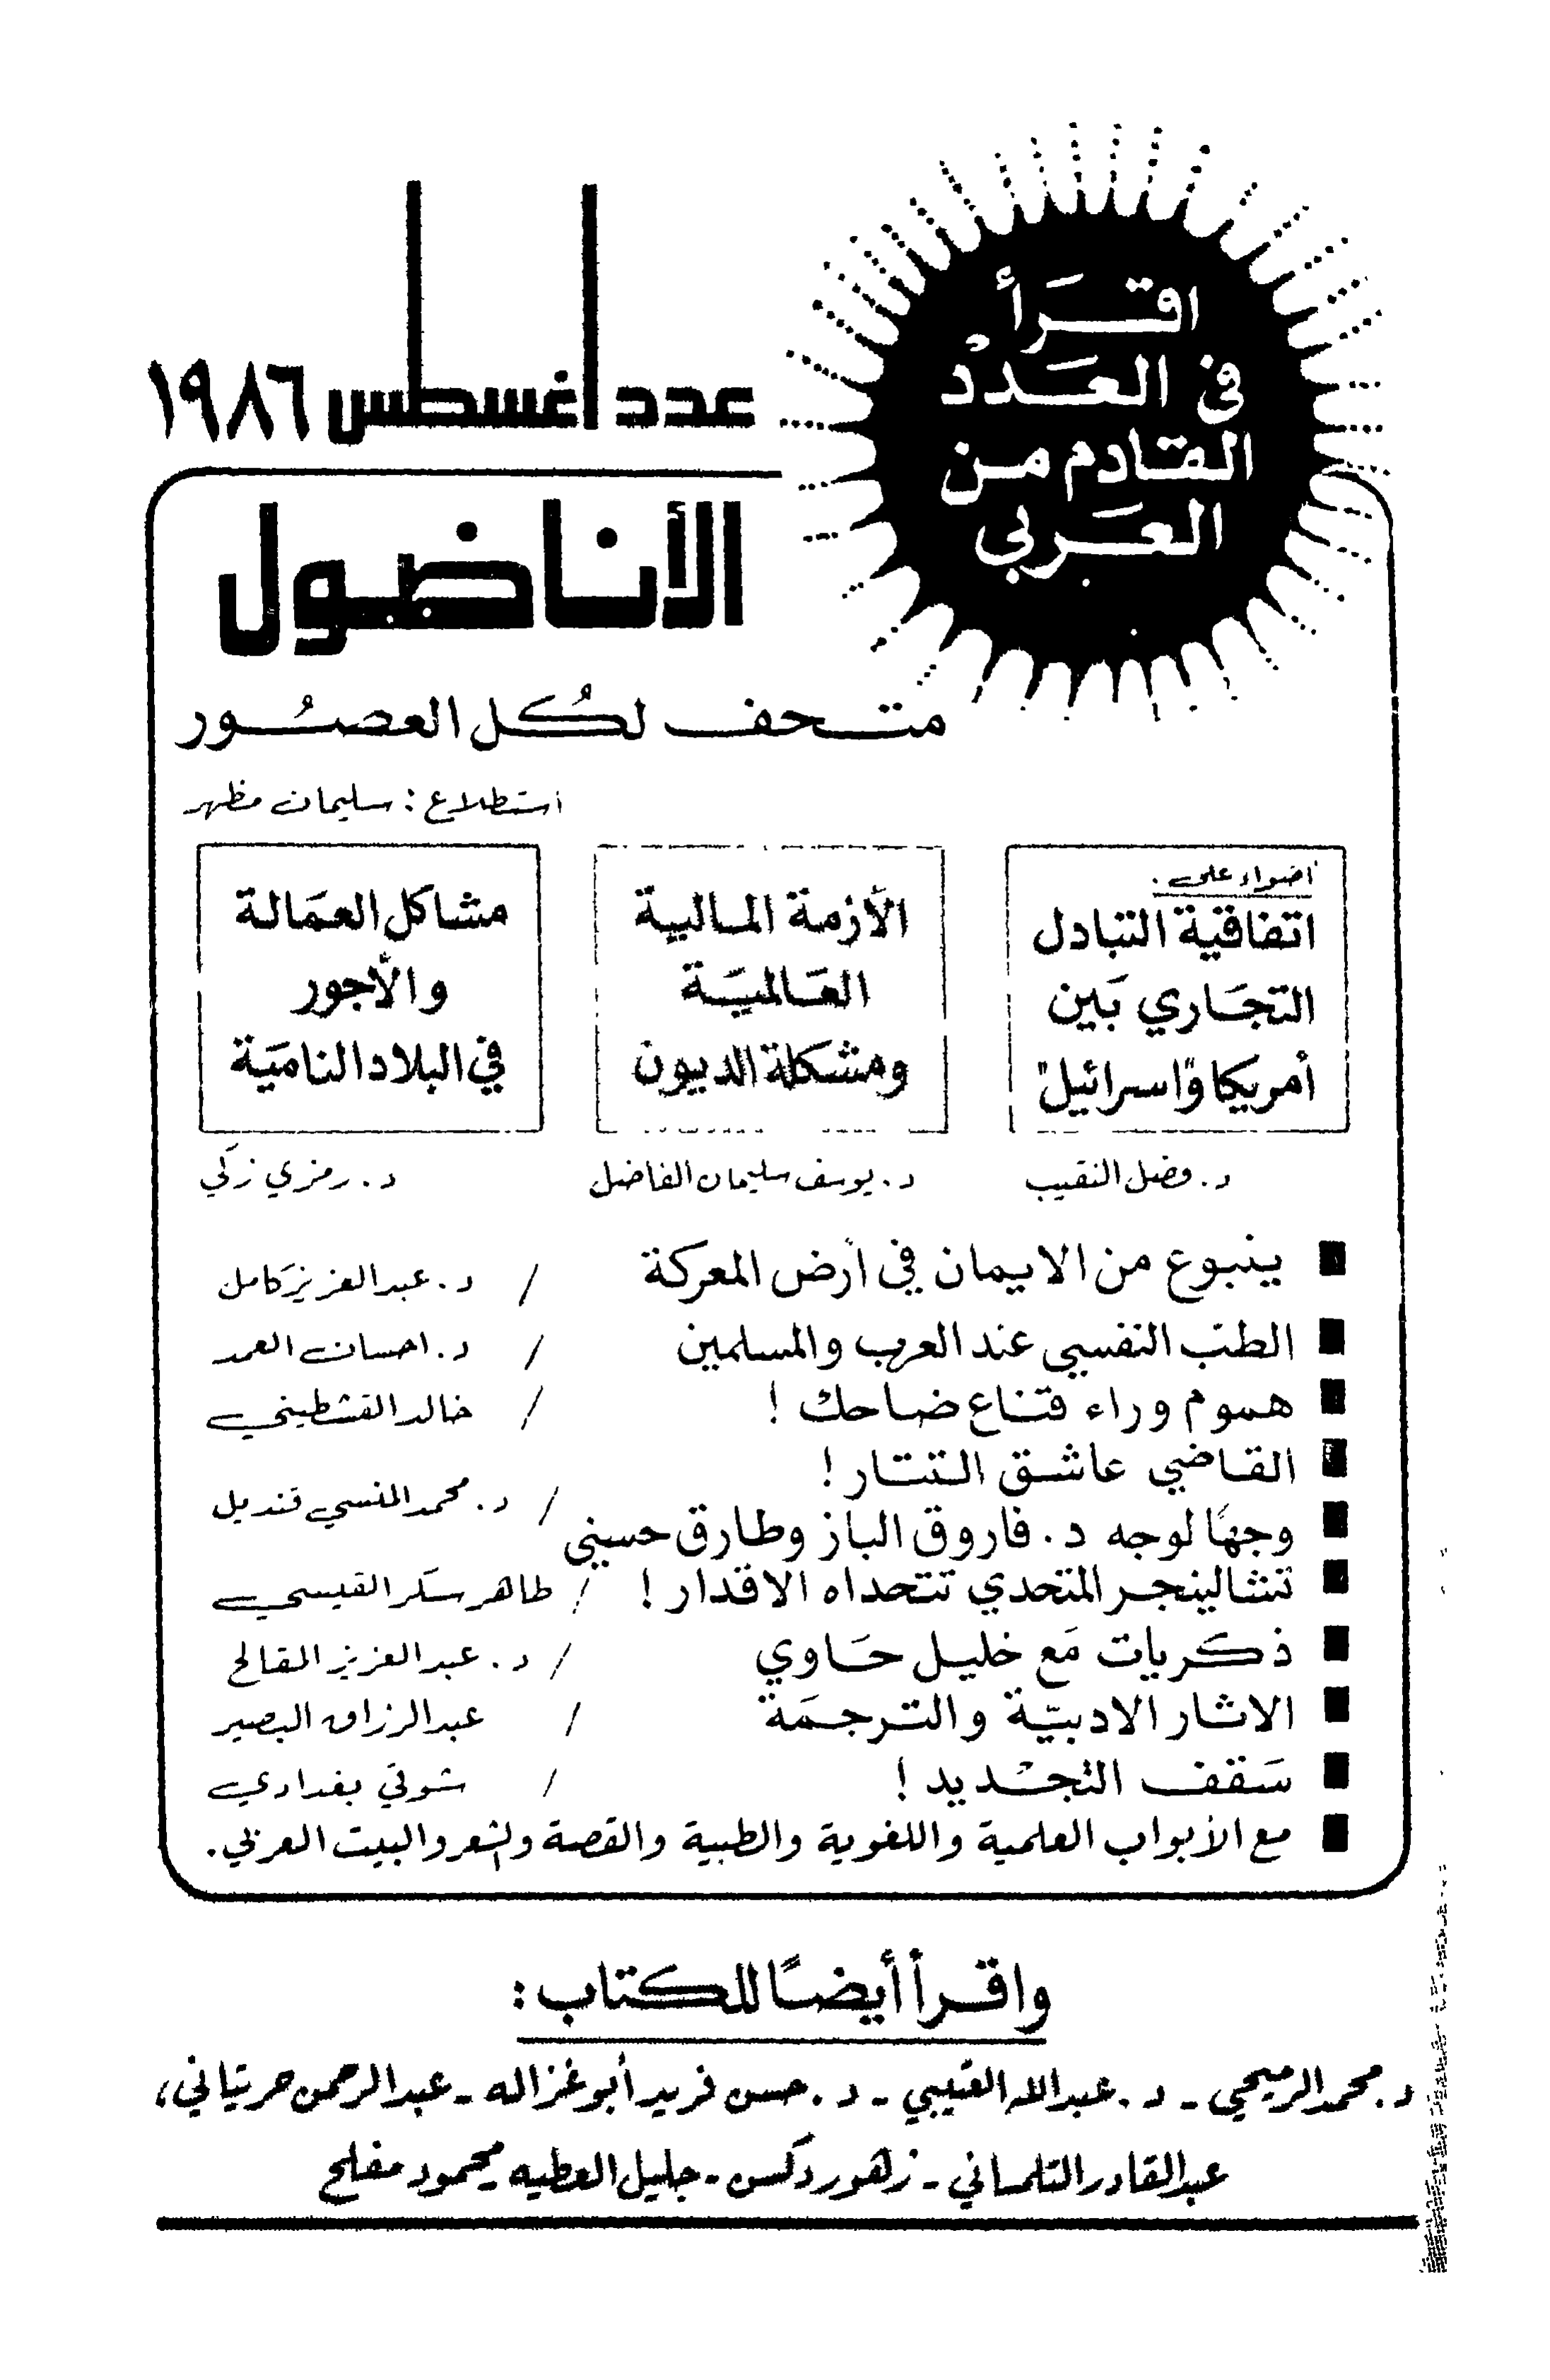 اقرَأ
في العَدَد
القادم من
العَربي
عدد اغسطس ١٩٨٦
الأناضول
متحف لكُل العصُور
استطلاع : سليمان مظهر
أضواء على .
اتفاقية التبادل
التجَاري بَين
أمريكا و"اسرائيل"
د. فضل النقيب
الأزمة المالية
العَالميَة
ومشكلة الديون
د. يوسف سليمان الفاضل
مشاكل العمَالة
والأجور
في البلاد الناميَة
د. رمزي زكي
■ ينبوع من الايمان في أرض المعركة / د. عبدالعزيز كامل
■ الطبّ النفسي عند العرب والمسلمين / د. احسان العمد
■ هموم وراء قناع ضاحك ! / خالد القشطيني
■ القاضي عاشق التتار !
■ وجهًا لوجه د. فاروق الباز وطارق حسني / د. محمد المنسي قنديل
■ تشالينجر المتحدي تتحداه الاقدار ! / طاهر سكر القيسي
■ ذكريات مَع خليل حَاوي / د. عبدالعزيز المقالح
■ الاثار الادبيّة والترجمَة / عبدالرزاق البصير
■ سَقف التجديد ! / شوقي بغدادي
■ مع الأبواب العلمية واللغوية والطبية والقصة والشعر والبيت العربي .
واقرأ أيضًا للكتاب :
د. محمد الرميحي - د. عبدالله العتيبي - د. حسن فريد أبو غزاله - عبدالرحمن حريتاني،
عبدالقادر التلمساني - زهور دكسن - جليل العطيه - محمود مفلح